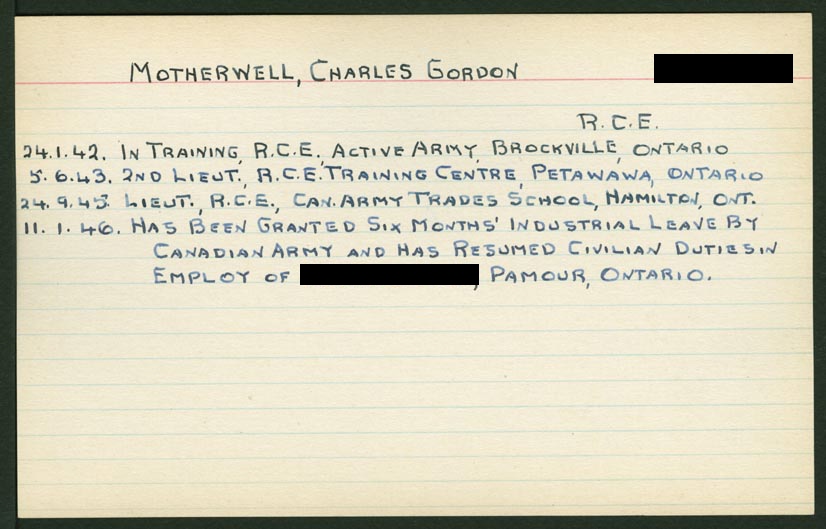 MOTHERWELL, CHARLES GORDON
R.C.E.
24.1.42. IN TRAINING, R.C.E., ACTIVE ARMY, BROCKVILLE, ONTARIO
5.6.43. 2ND LIEUT., R.C.E. TRAINING CENTRE, PETAWAWA, ONTARIO
24.9.45. LIEUT., R.C.E., CAN. ARMY TRADES SCHOOL, HAMILTON, ONT.
11.1.46. HAS BEEN GRANTED SIX MONTHS' INDUSTRIAL LEAVE BY
CANADIAN ARMY AND HAS RESUMED CIVILIAN DUTIES IN
EMPLOY OF , PAMOUR, ONTARIO.